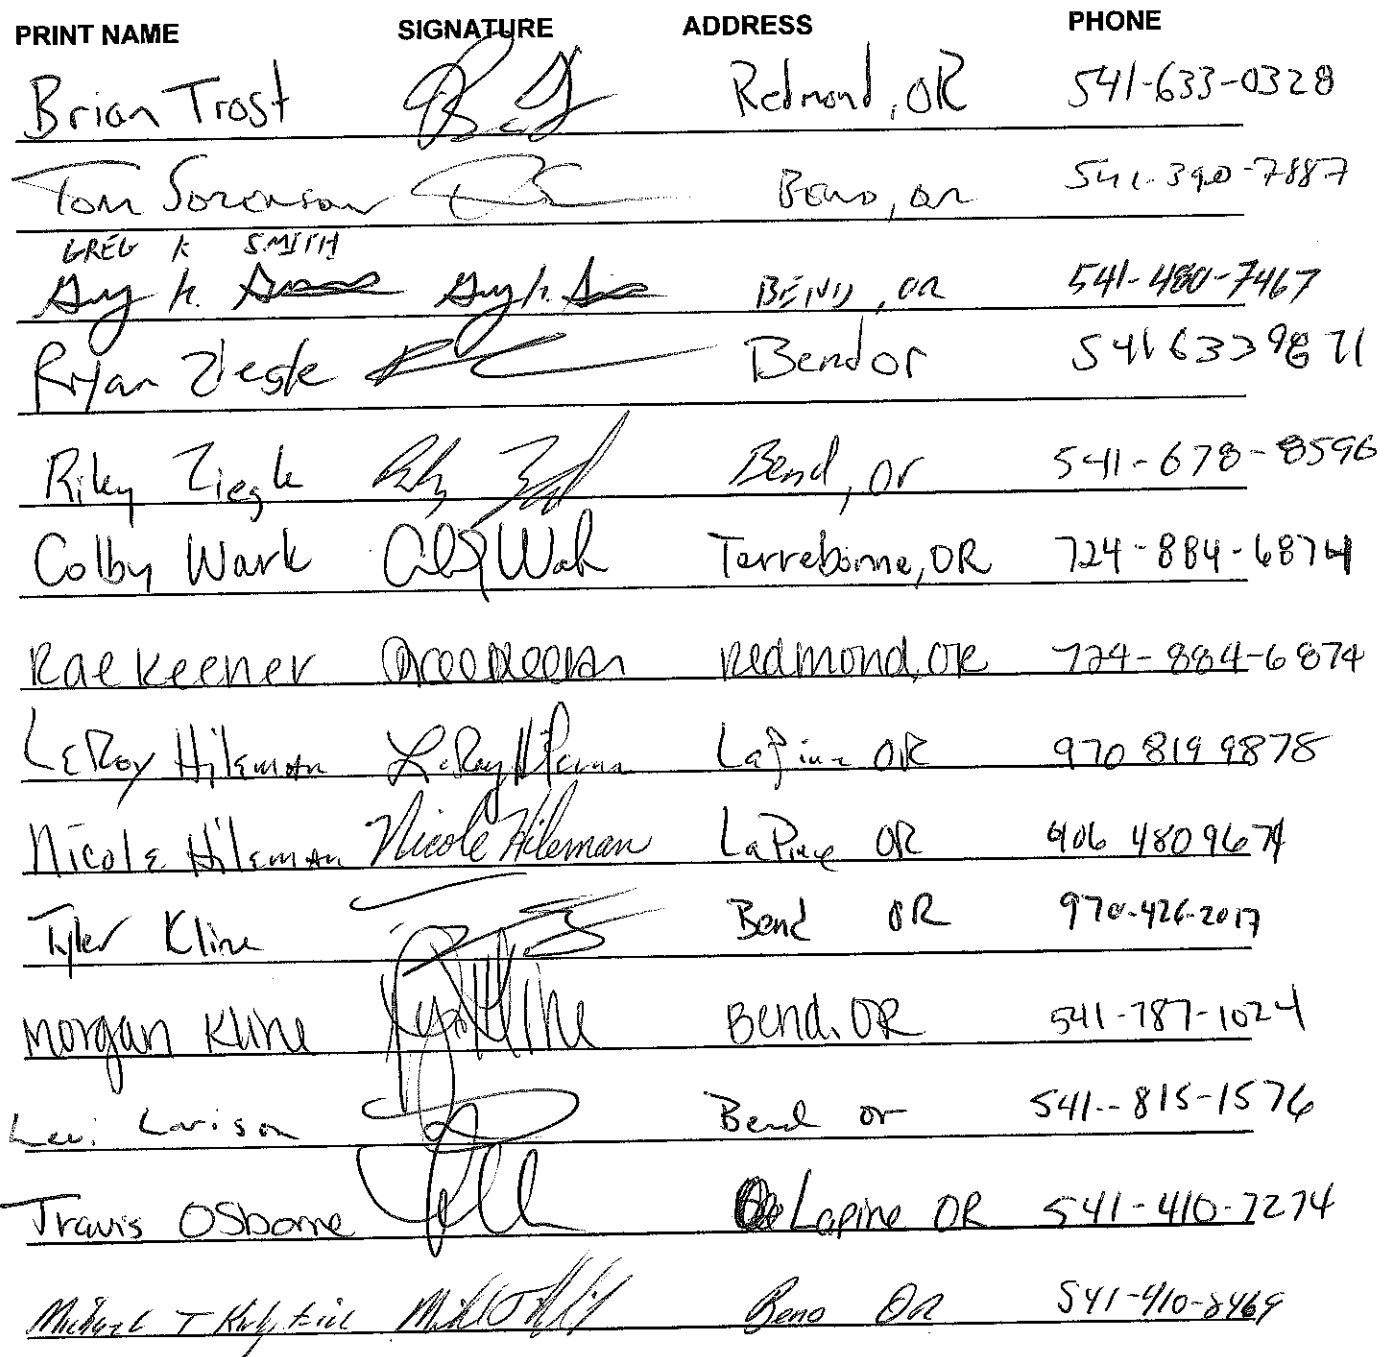 PRINT NAME SIGNATURE ADDRESS PHONE
Brian Trost Redmond, OR 541-633-0328
Tom Sorenson Bend, OR 541-390-7887
GREG K SMITH
Greg K. BEND, OR 541-480-7467
Ryan Ziegle Bend or 541 633 9871
Riley Ziegle Bend, or 541-678-8596
Colby Wark Terrebonne, OR 724-884-6874
Rae Keener Redmond, OR 724-884-6874
LeRoy Hileman LeRoy Hileman LaPine OR 970 819 9878
Nicole Hileman Nicole Hileman LaPine OR 406 480 9674
Tyler Kline Bend OR 970-426-2017
Morgan Kline Bend, OR 541-787-1024
Levi Larison Bend or 541--815-1576
Travis Osborne Lapine OR 541-410-7274
Michael T Bend OR 541-410-8469